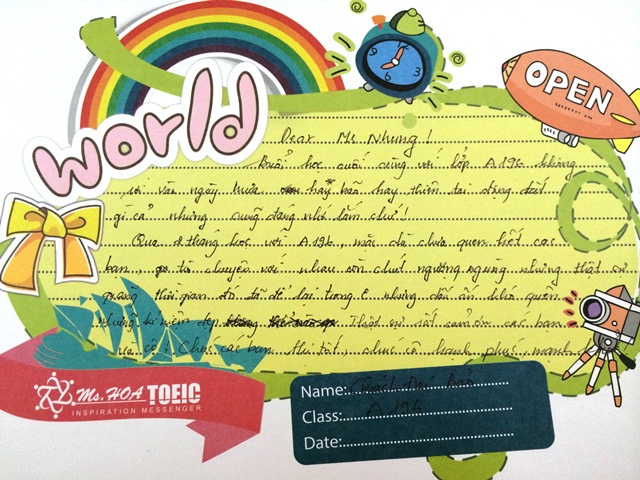 world
OPEN
Dear Ms Nhung!
Buổi học cuối cùng với lớp A196 không
rơi vào ngày mưa hay bão hay thiên tai động đất
gì cả nhưng cũng đáng nhớ lắm chứ!
Qua 2 tháng học với A196, mặc dù chưa quen hết các
bạn, trò chuyện với nhau còn chút ngượng ngùng nhưng thật sự
quãng thời gian đó đã để lại trong E những dấu ấn khó quên
những kỉ niệm đẹp. Thật sự rất cảm ơn các bạn
và cô. Chúc các bạn thi tốt, chúc cô hạnh phúc, mạnh
Ms. HOA TOEIC
INSPIRATION MESSENGER
Name:
Class: A196
Date: